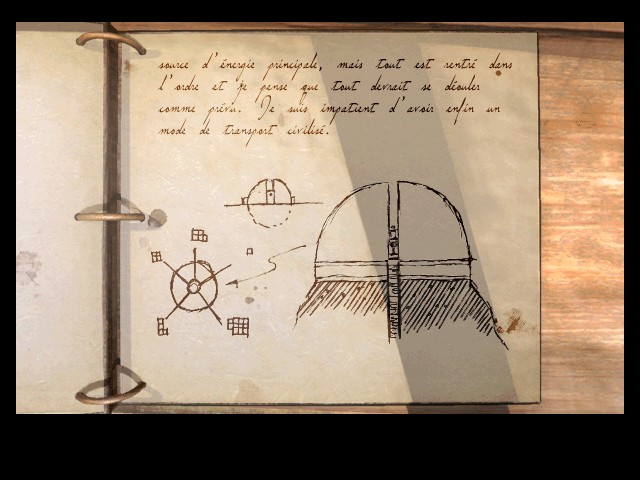 source d'énergie principale, mais tout est rentré dans
l'ordre et je pense que tout devrait se dérouler
comme prévu. Je suis impatient d'avoir enfin un
mode de transport civilisé.